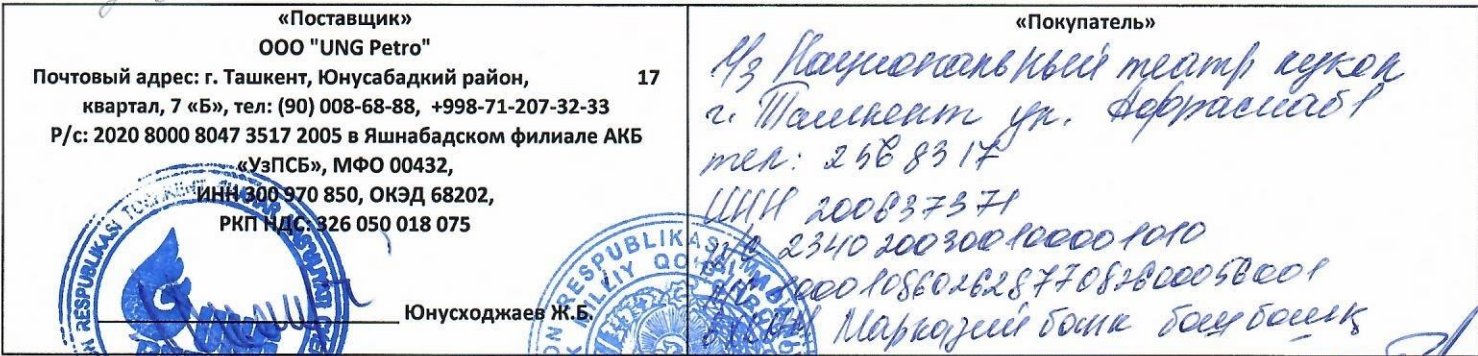 «Поставщик»
ООО "UNG Petro"
Почтовый адрес: г. Ташкент, Юнусабадкий район, 17
квартал, 7 «Б», тел: (90) 008-68-88, +998-71-207-32-33
Р/с: 2020 8000 8047 3517 2005 в Яшнабадском филиале АКБ
«УзПСБ», МФО 00432,
ИНН 300 970 850, ОКЭД 68202,
РКП НДС: 326 050 018 075
Юнусходжаев Ж.Б.
RESPUBLIKASI
«Покупатель»
Уз Национальный театр кукол
г. Ташкент ул. Афрасиаб 1
тел: 2568317
ИНН 200637371
2340200300100001010
Марказий банк
RESPUBLIKASI
MILLIY